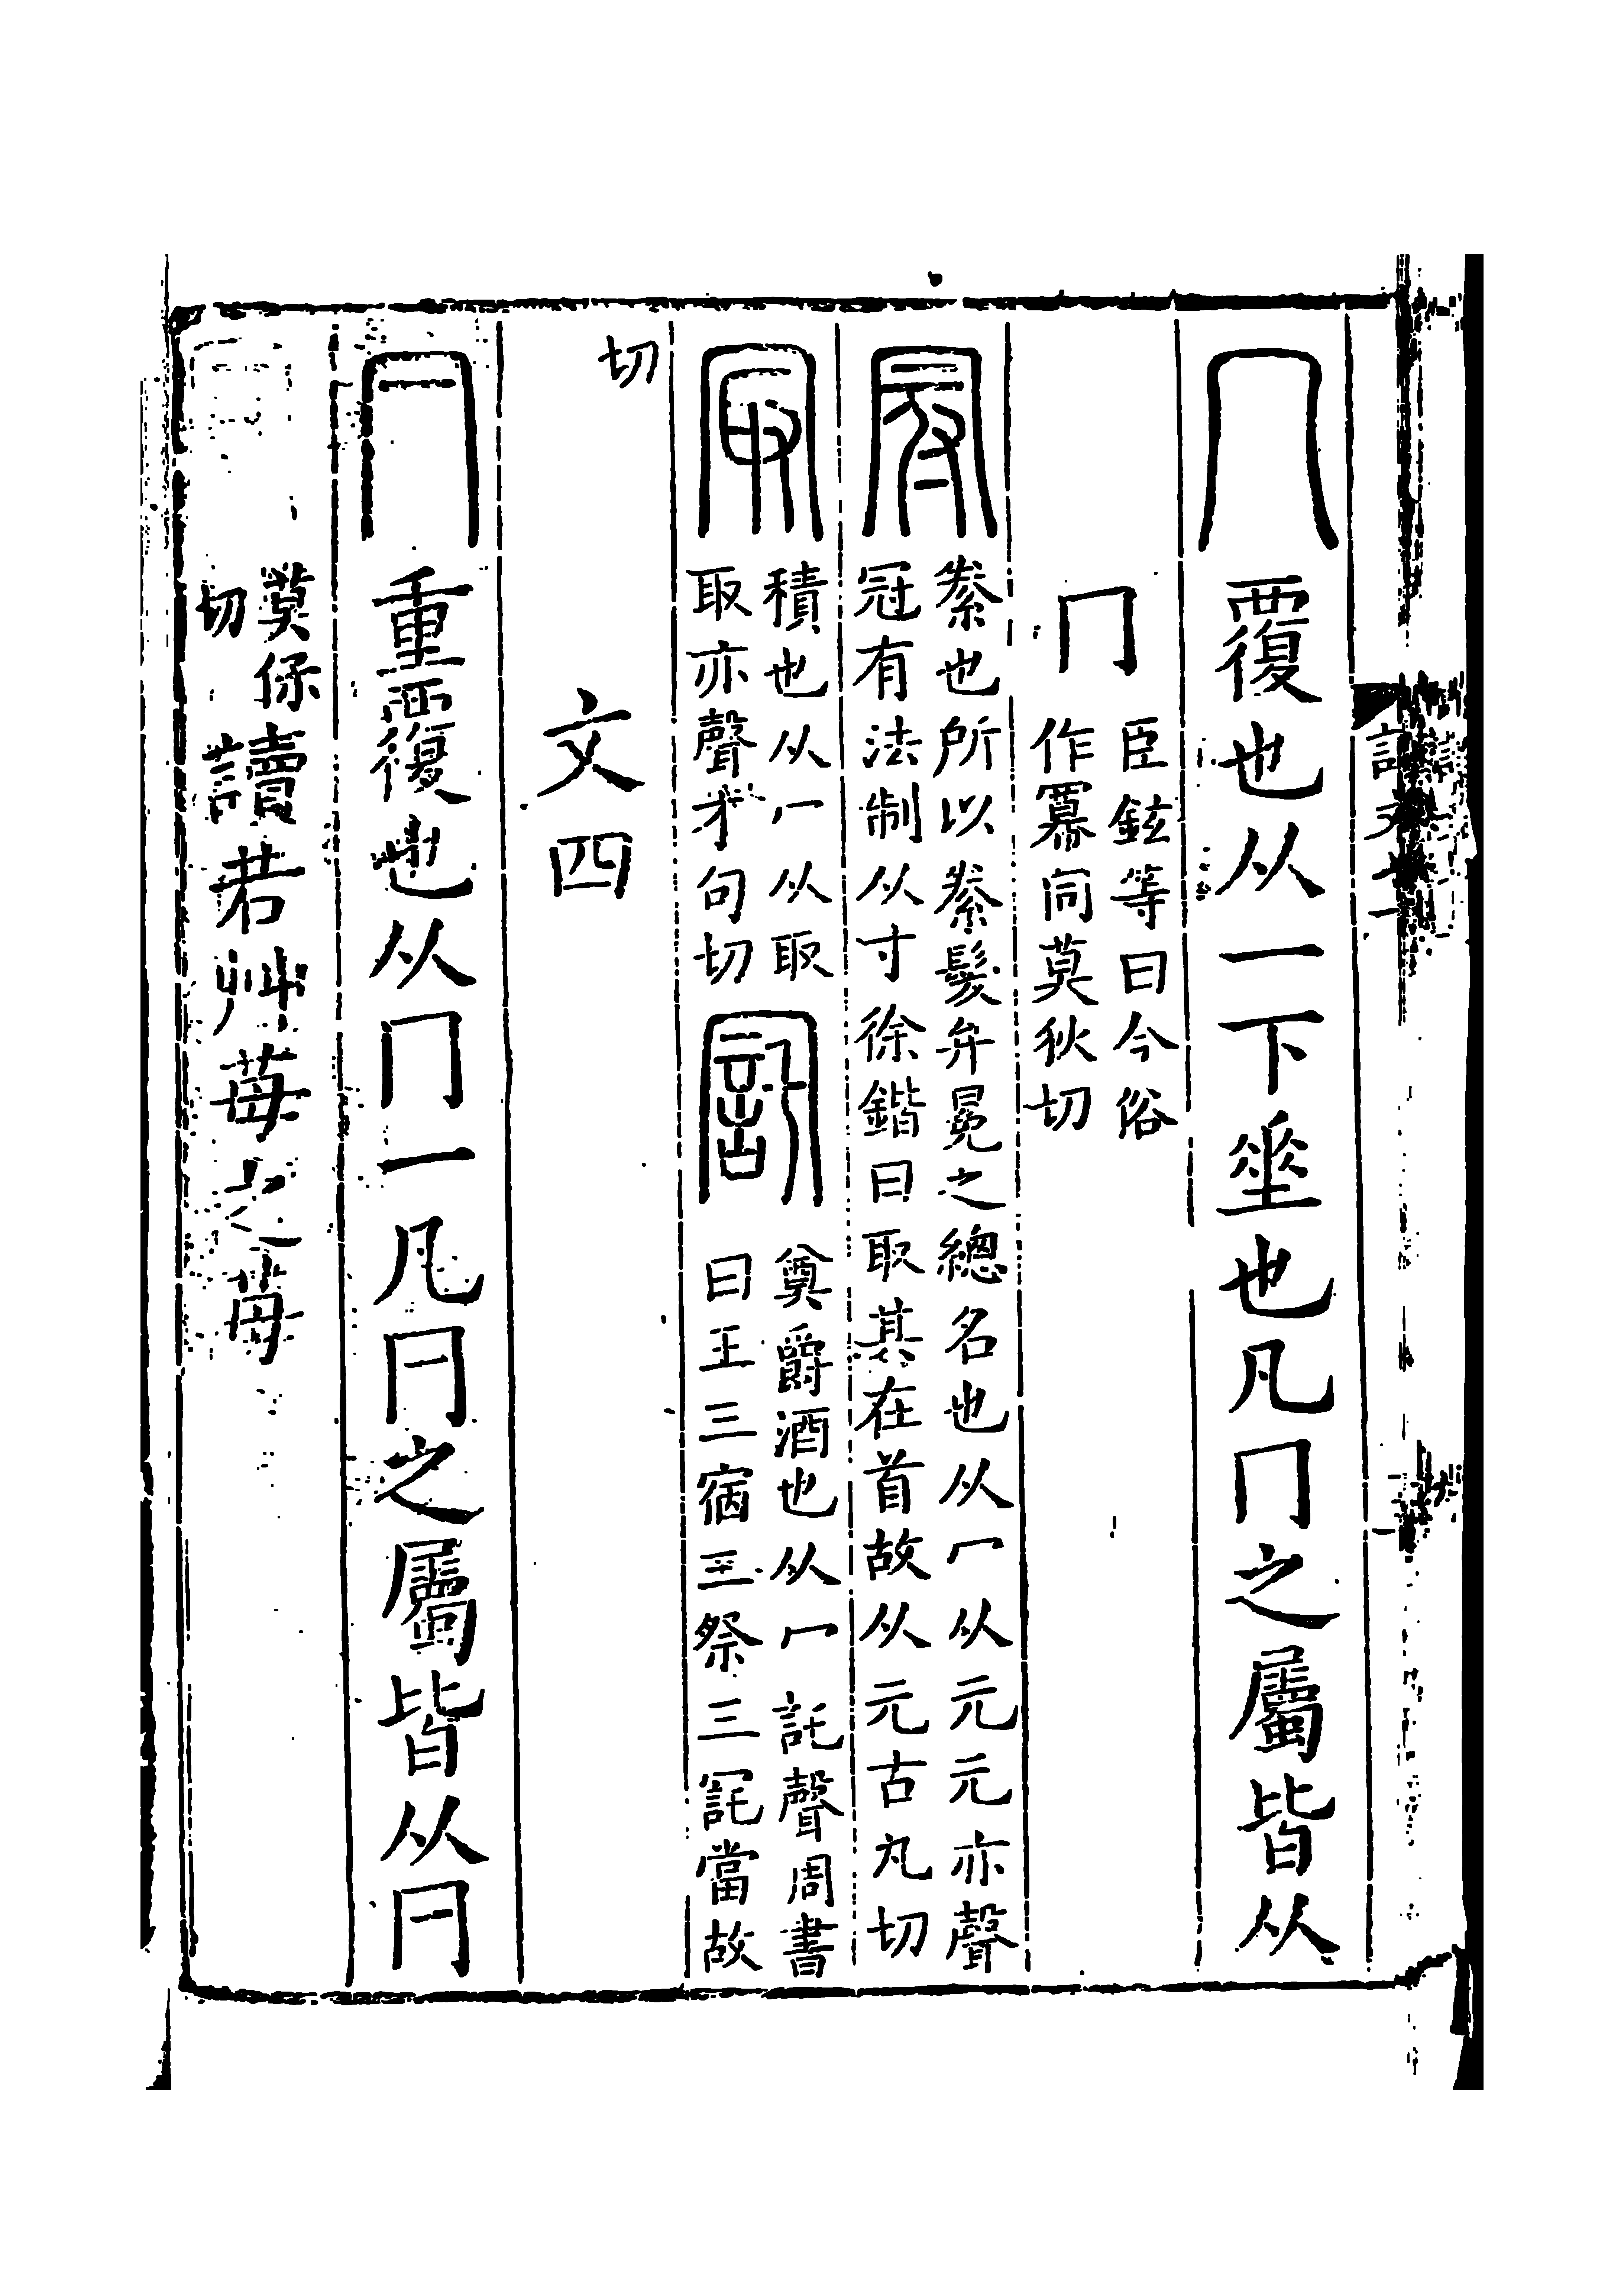 冖覆也从一下垂也凡冖之屬皆从
冖臣鉉等曰今俗作冪同莫狄切
冠絭也所以絭髮弁冕之總名也从冖从元元亦聲冠有法制从寸徐鍇曰取其在首故从元古丸切
冣積也从冖从取取亦聲才句切 託奠爵酒也从冖託聲周書曰王三宿三祭三詫當故
切
文四
冃重覆也从冖一凡冃之屬皆从冃
莫保切讀若艸苺之苺